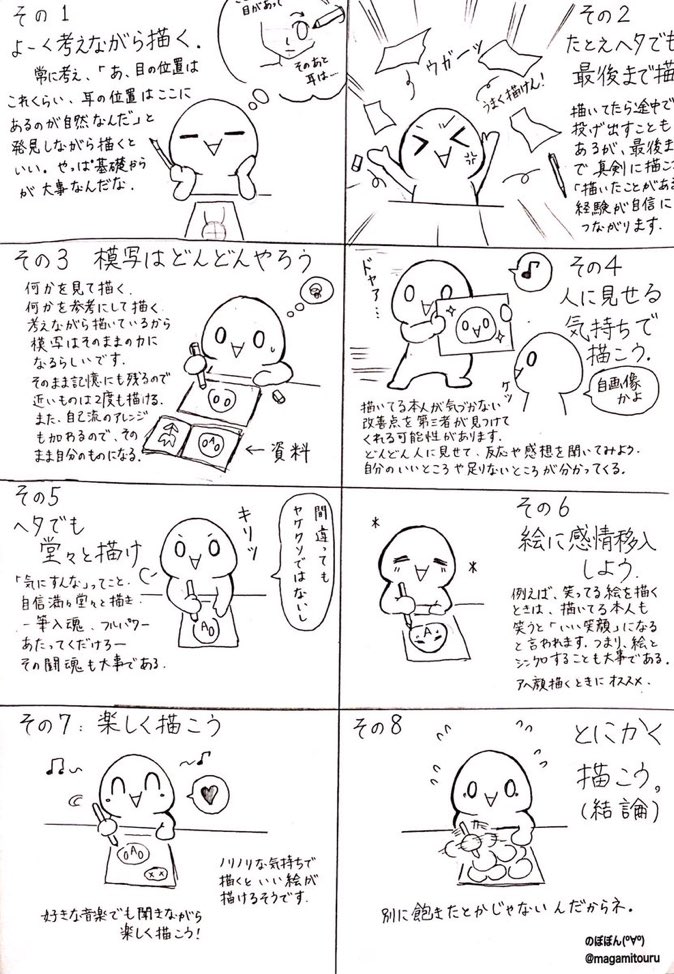 その1
よーく考えながら描く.
常に考え、「あ、目の位置は
これくらい、耳の位置はここに
あるのが自然なんだ」と
発見しながら描くと
いい。やっぱ基礎から
が大事なんだな.
目があって
そのあと
耳は…
その2
たとえヘタでも
最後まで描
描いてたら途中で
投げ出すことも
あるが、最後ま
で真剣に描こ
「描いたことがある
経験が自信に
つながります.
ウガーッ
うまく描けん!
その3 模写はどんどんやろう
何かを見て描く.
何かを参考にして描く.
考えながら描いているから
模写はそのままの力に
なるらしいです.
そのまま記憶にも残るので
近いものは2度も描ける.
また、自己流のアレンジ
も加わるので、その
まま自分のものになる.
←資料
その4
人に見せる
気持ちで
描こう.
ドヤァ…
ケッ
自画像
かよ
描いてる本人が気づかない
改善点を第三者が見つけて
くれる可能性があります.
どんどん人に見せて、反応や感想を聞いてみよう.
自分のいいところや足りないところが分かってくる.
その5
ヘタでも
堂々と描け
「気にすんな」ってこと.
自信満々堂々と描き.
一筆入魂、フルパワー
あたってくだけろー
その闘魂も大事である.
キリッ
間違っても
ヤケクソではないし
その6
絵に感情移入
しよう.
例えば、笑ってる絵を描く
ときは、描いてる本人も
笑うと「いい笑顔」になる
と言われます.つまり、絵と
シンクロすることも大事である.
アヘ顔描くときにオススメ.
その7:楽しく描こう
ノリノリな気持ちで
描くといい絵が
描けるそうです.
好きな音楽でも聞きながら
楽しく描こう!
その8
とにかく
描こう。
(結論)
別に飽きたとかじゃないんだからネ.
のぽぽん(º∀º)
@magamitouru